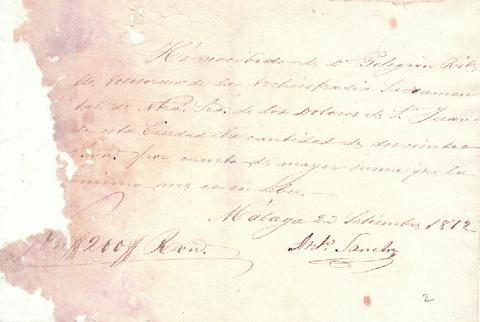 He recibido de Dn. Pelegrin
Tesorero de la Archicofradia Sacramen
tal de Ntra. Sra. de los Dolores de Sn. Juan
de esta Ciudad la cantidad de doscientos
por cuenta de mayor suma que la
misma me es en deber.
Málaga 23 Setiembre 1872
200 Rvon. Anto. Sanchez
2